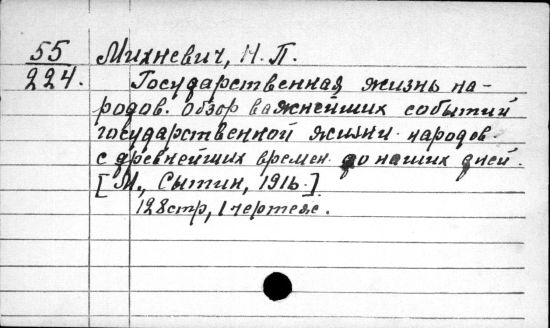 55 Михневич, Н. П.
224. Государственная жизнь на-
родов. Обзор важнейших событий
государственной жизни народов
с древнейших времен до наших дней.
[М., Сытин, 1916.]
128 стр, 1 чертеж.